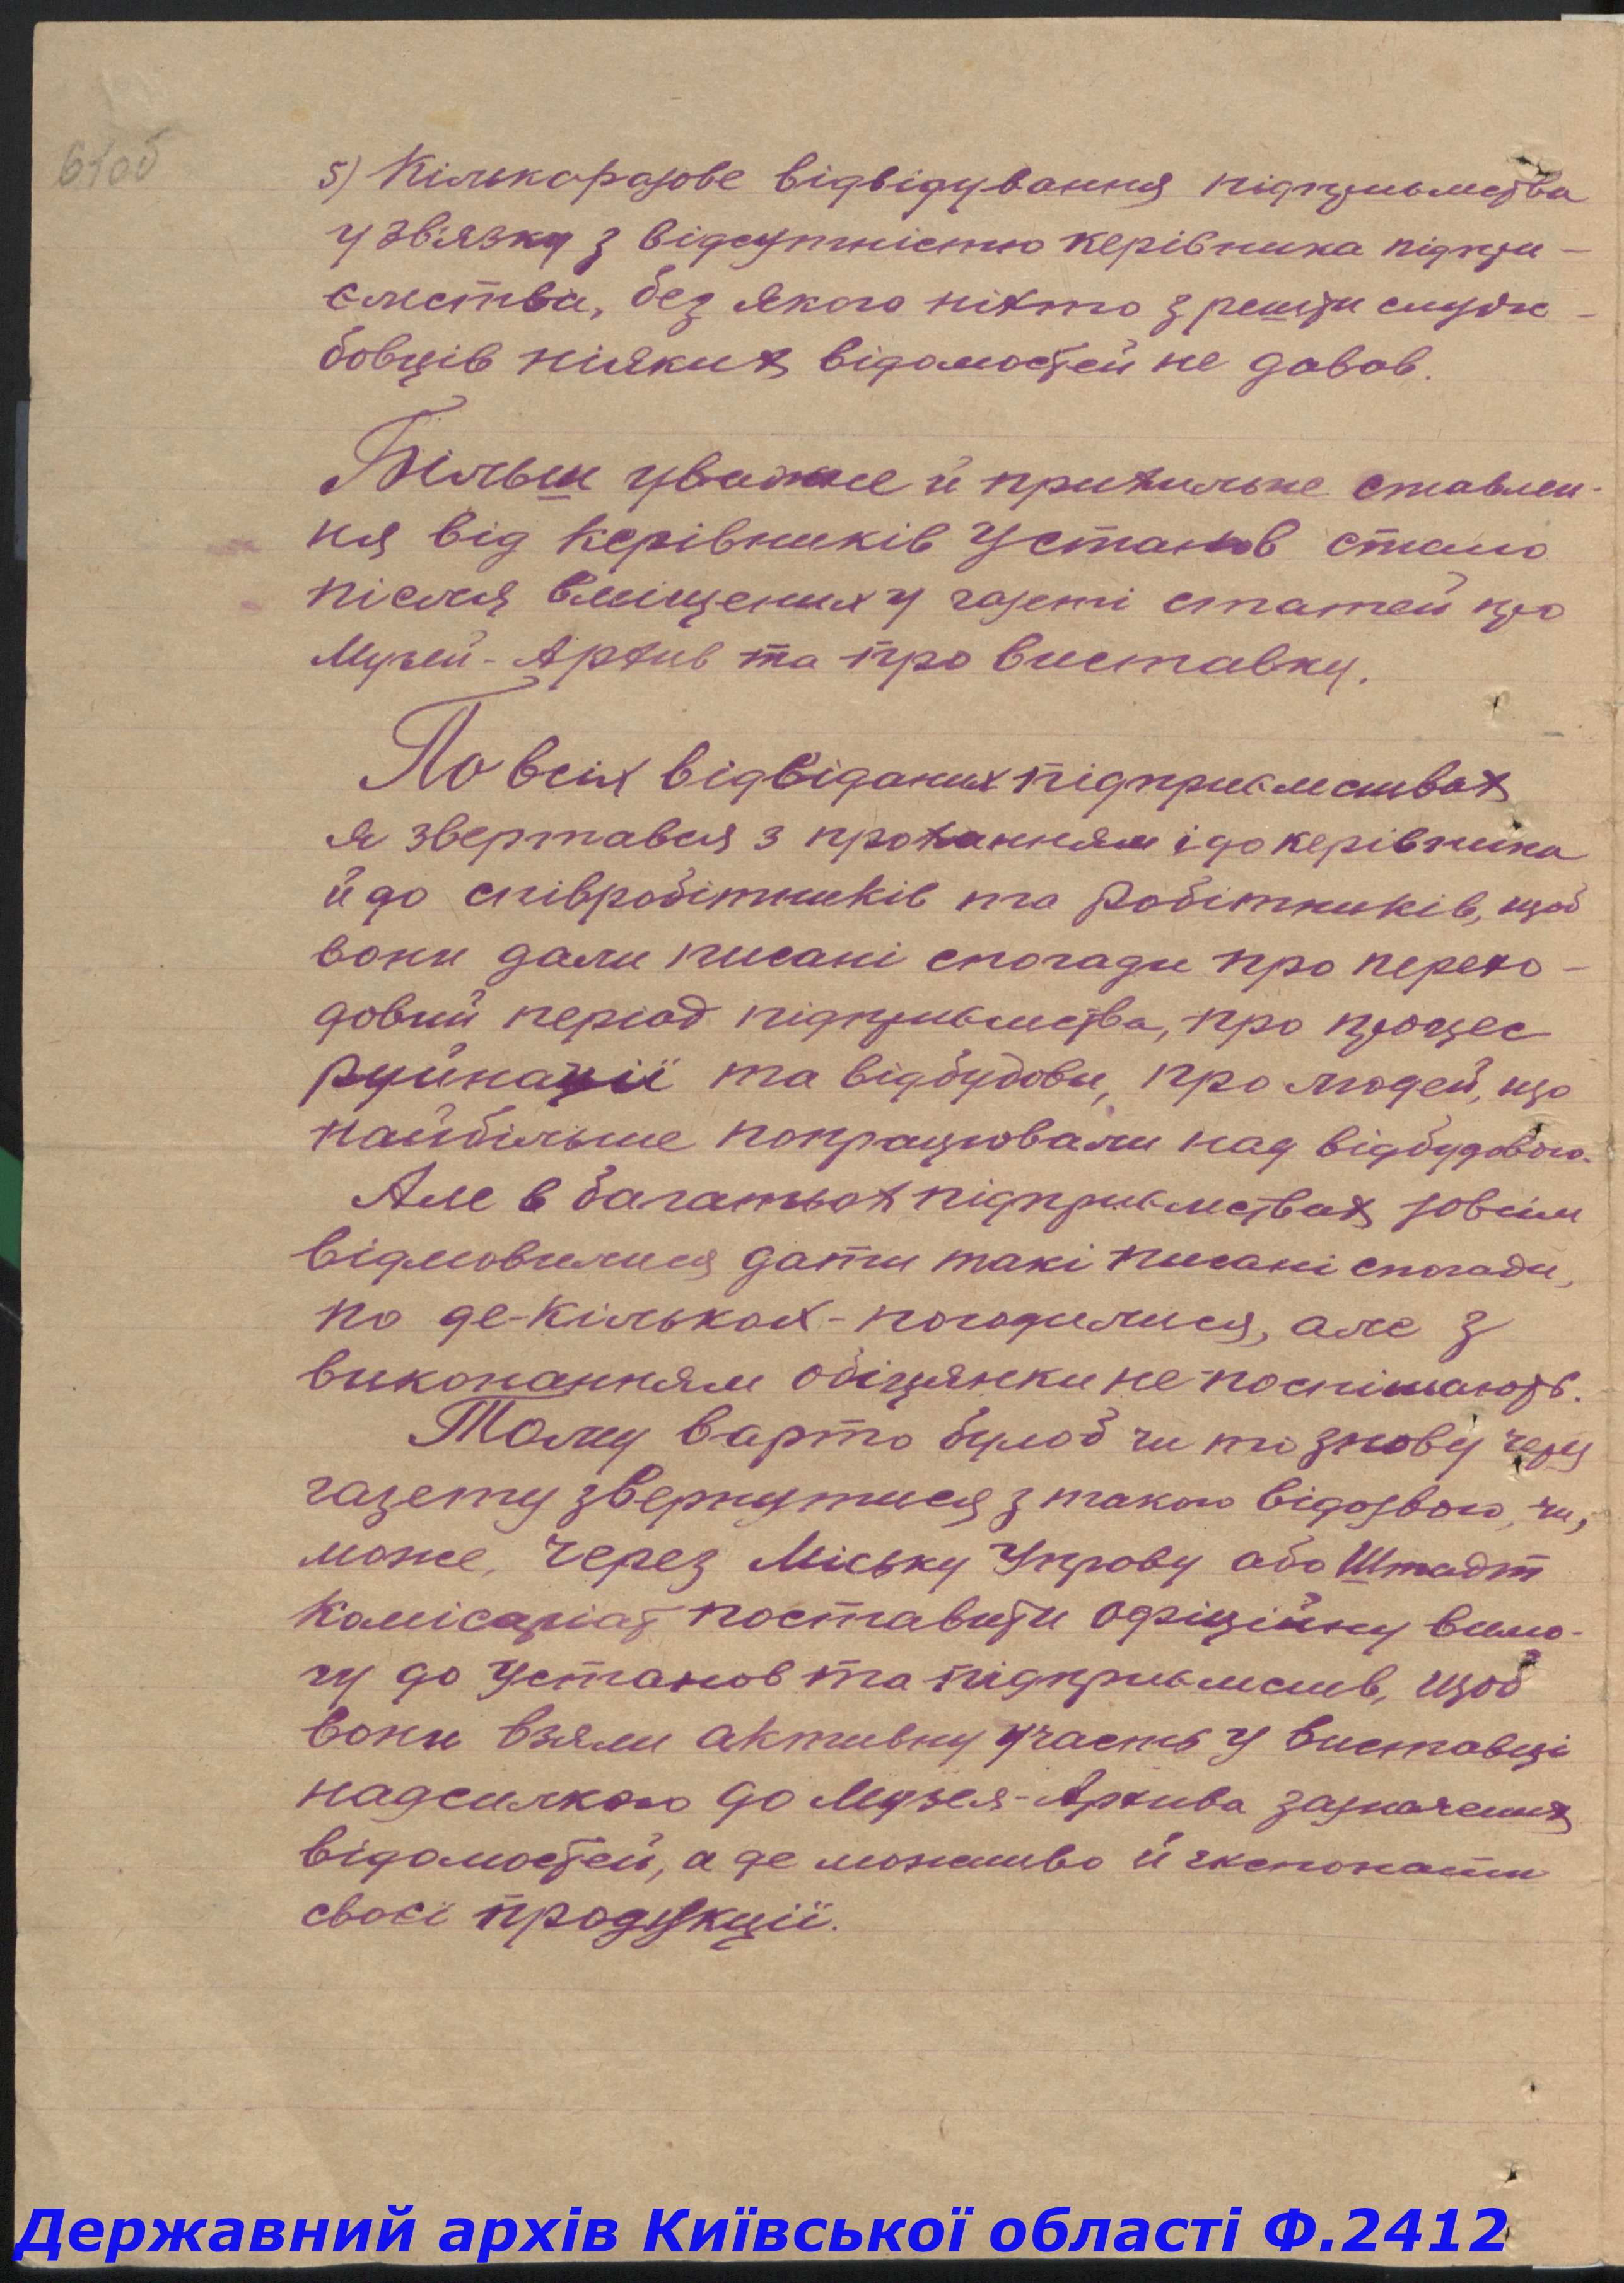 61об
5) Кількаразове відвідування підприємства
у звязку з відсутністю керівника підпри-
ємства, без якого ніхто з решти служ-
бовців ніяких відомостей не давав.
Більш уважне й прихильне ставлен-
ня від керівників Установ стало
після вміщених у газеті статей про
Музей-Архив та про виставку.
По всіх відвіданих підприємствах
я звертався з проханням і до керівника
й до співробітників та робітників, щоб
вони дали писані спогади про перехо-
довий період підприємства, про процес
руйнації та відбудови, про людей, що
найбільше попрацювали над відбудовою.
Але в багатьох підприємствах зовсім
відмовилися дати такі писані спогади,
по де-кількох - погодилися, але з
виконанням обіцянки не поспішають.
Тому варто булоб чи то знову через
газету звернутися з такою відозвою, чи,
може, через Міську Управу або Штадт
Комісаріат поставити офіційну вимо-
гу до Установ та підприємств, щоб
вони взяли активну участь у виставці
надсилкою до Музея-Архива зазначених
відомостей, а де можливо й експонати
своєї продукції.
Державний архів Київської області Ф.2412